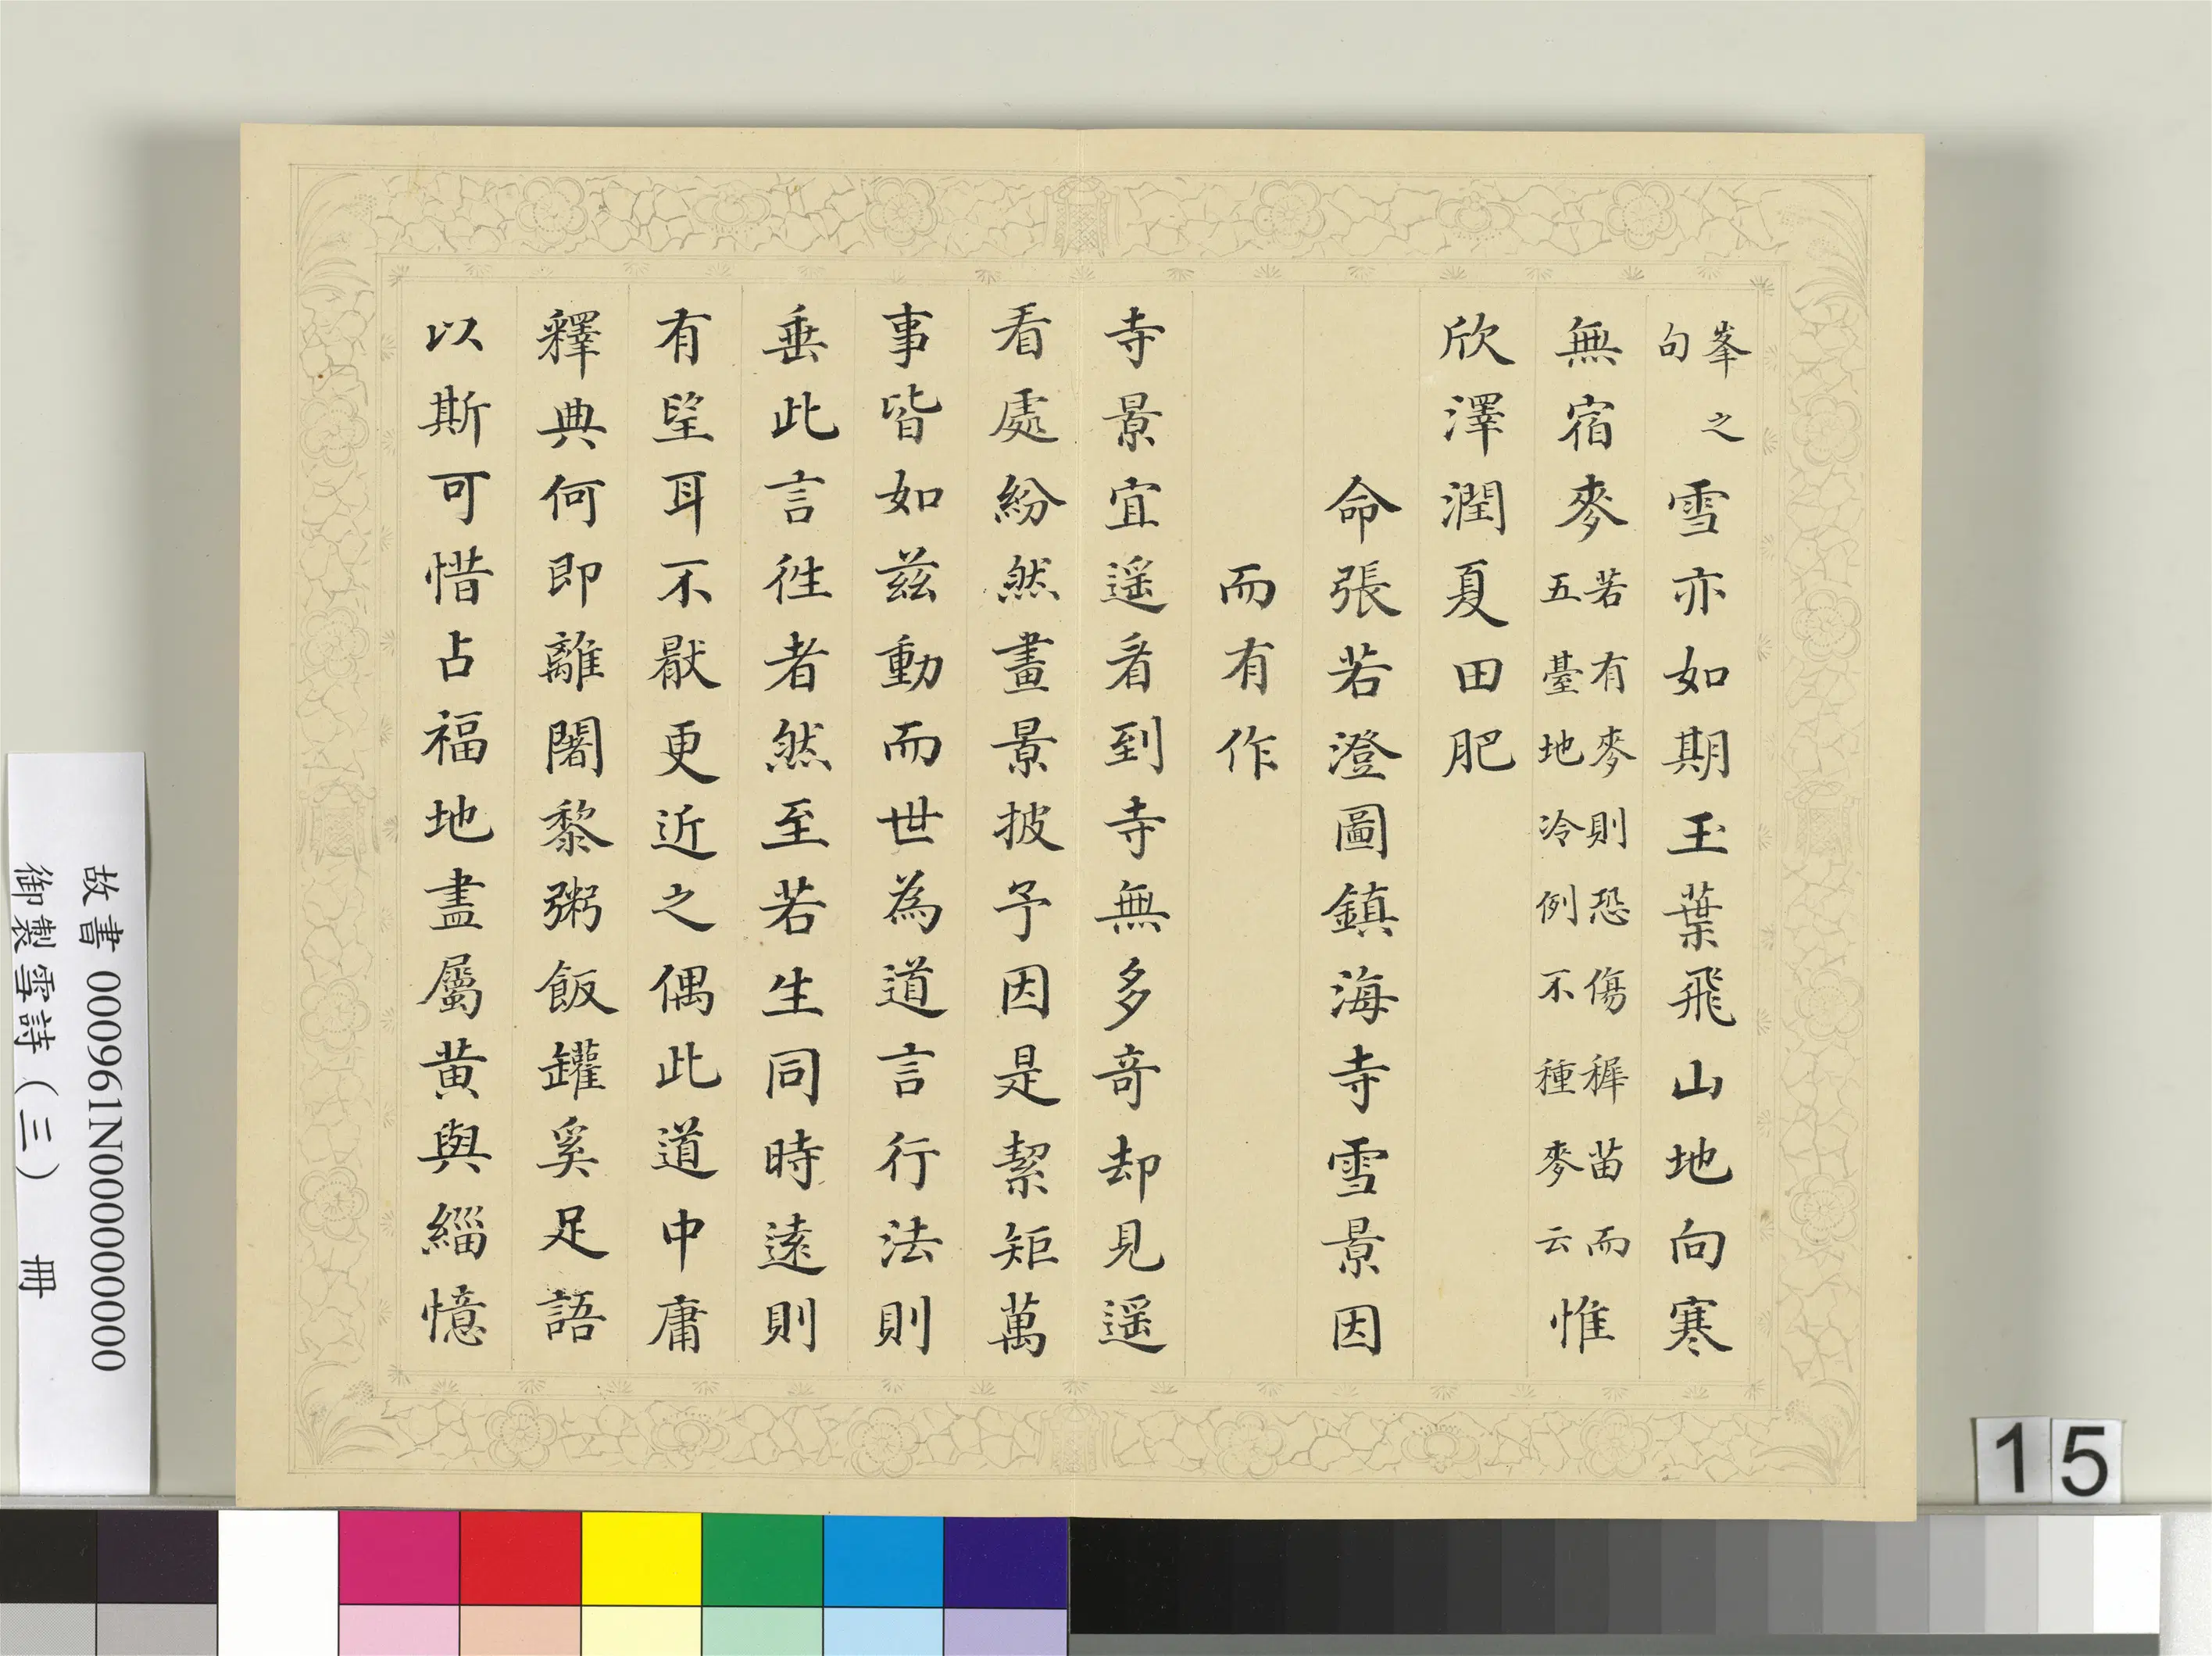 峯之句雪亦如期玉葉飛山地向寒
無宿麥若有麥則恐傷穉苗而五臺地冷例不種麥云惟
欣澤潤夏田肥
命張若澄圖鎮海寺雪景因
而有作
寺景宜遥看到寺無多竒却見遥
看處紛然畫景披予因是絜矩萬
事皆如兹動而世為道言行法則
垂此言徃者然至若生同時逺則
有望耳不厭更近之偶此道中庸
釋典何即離闍黎粥飯罐奚足語
以斯可惜占福地盡屬黄與緇憶
故書 000961N000000000
御製雪詩(三) 冊
15